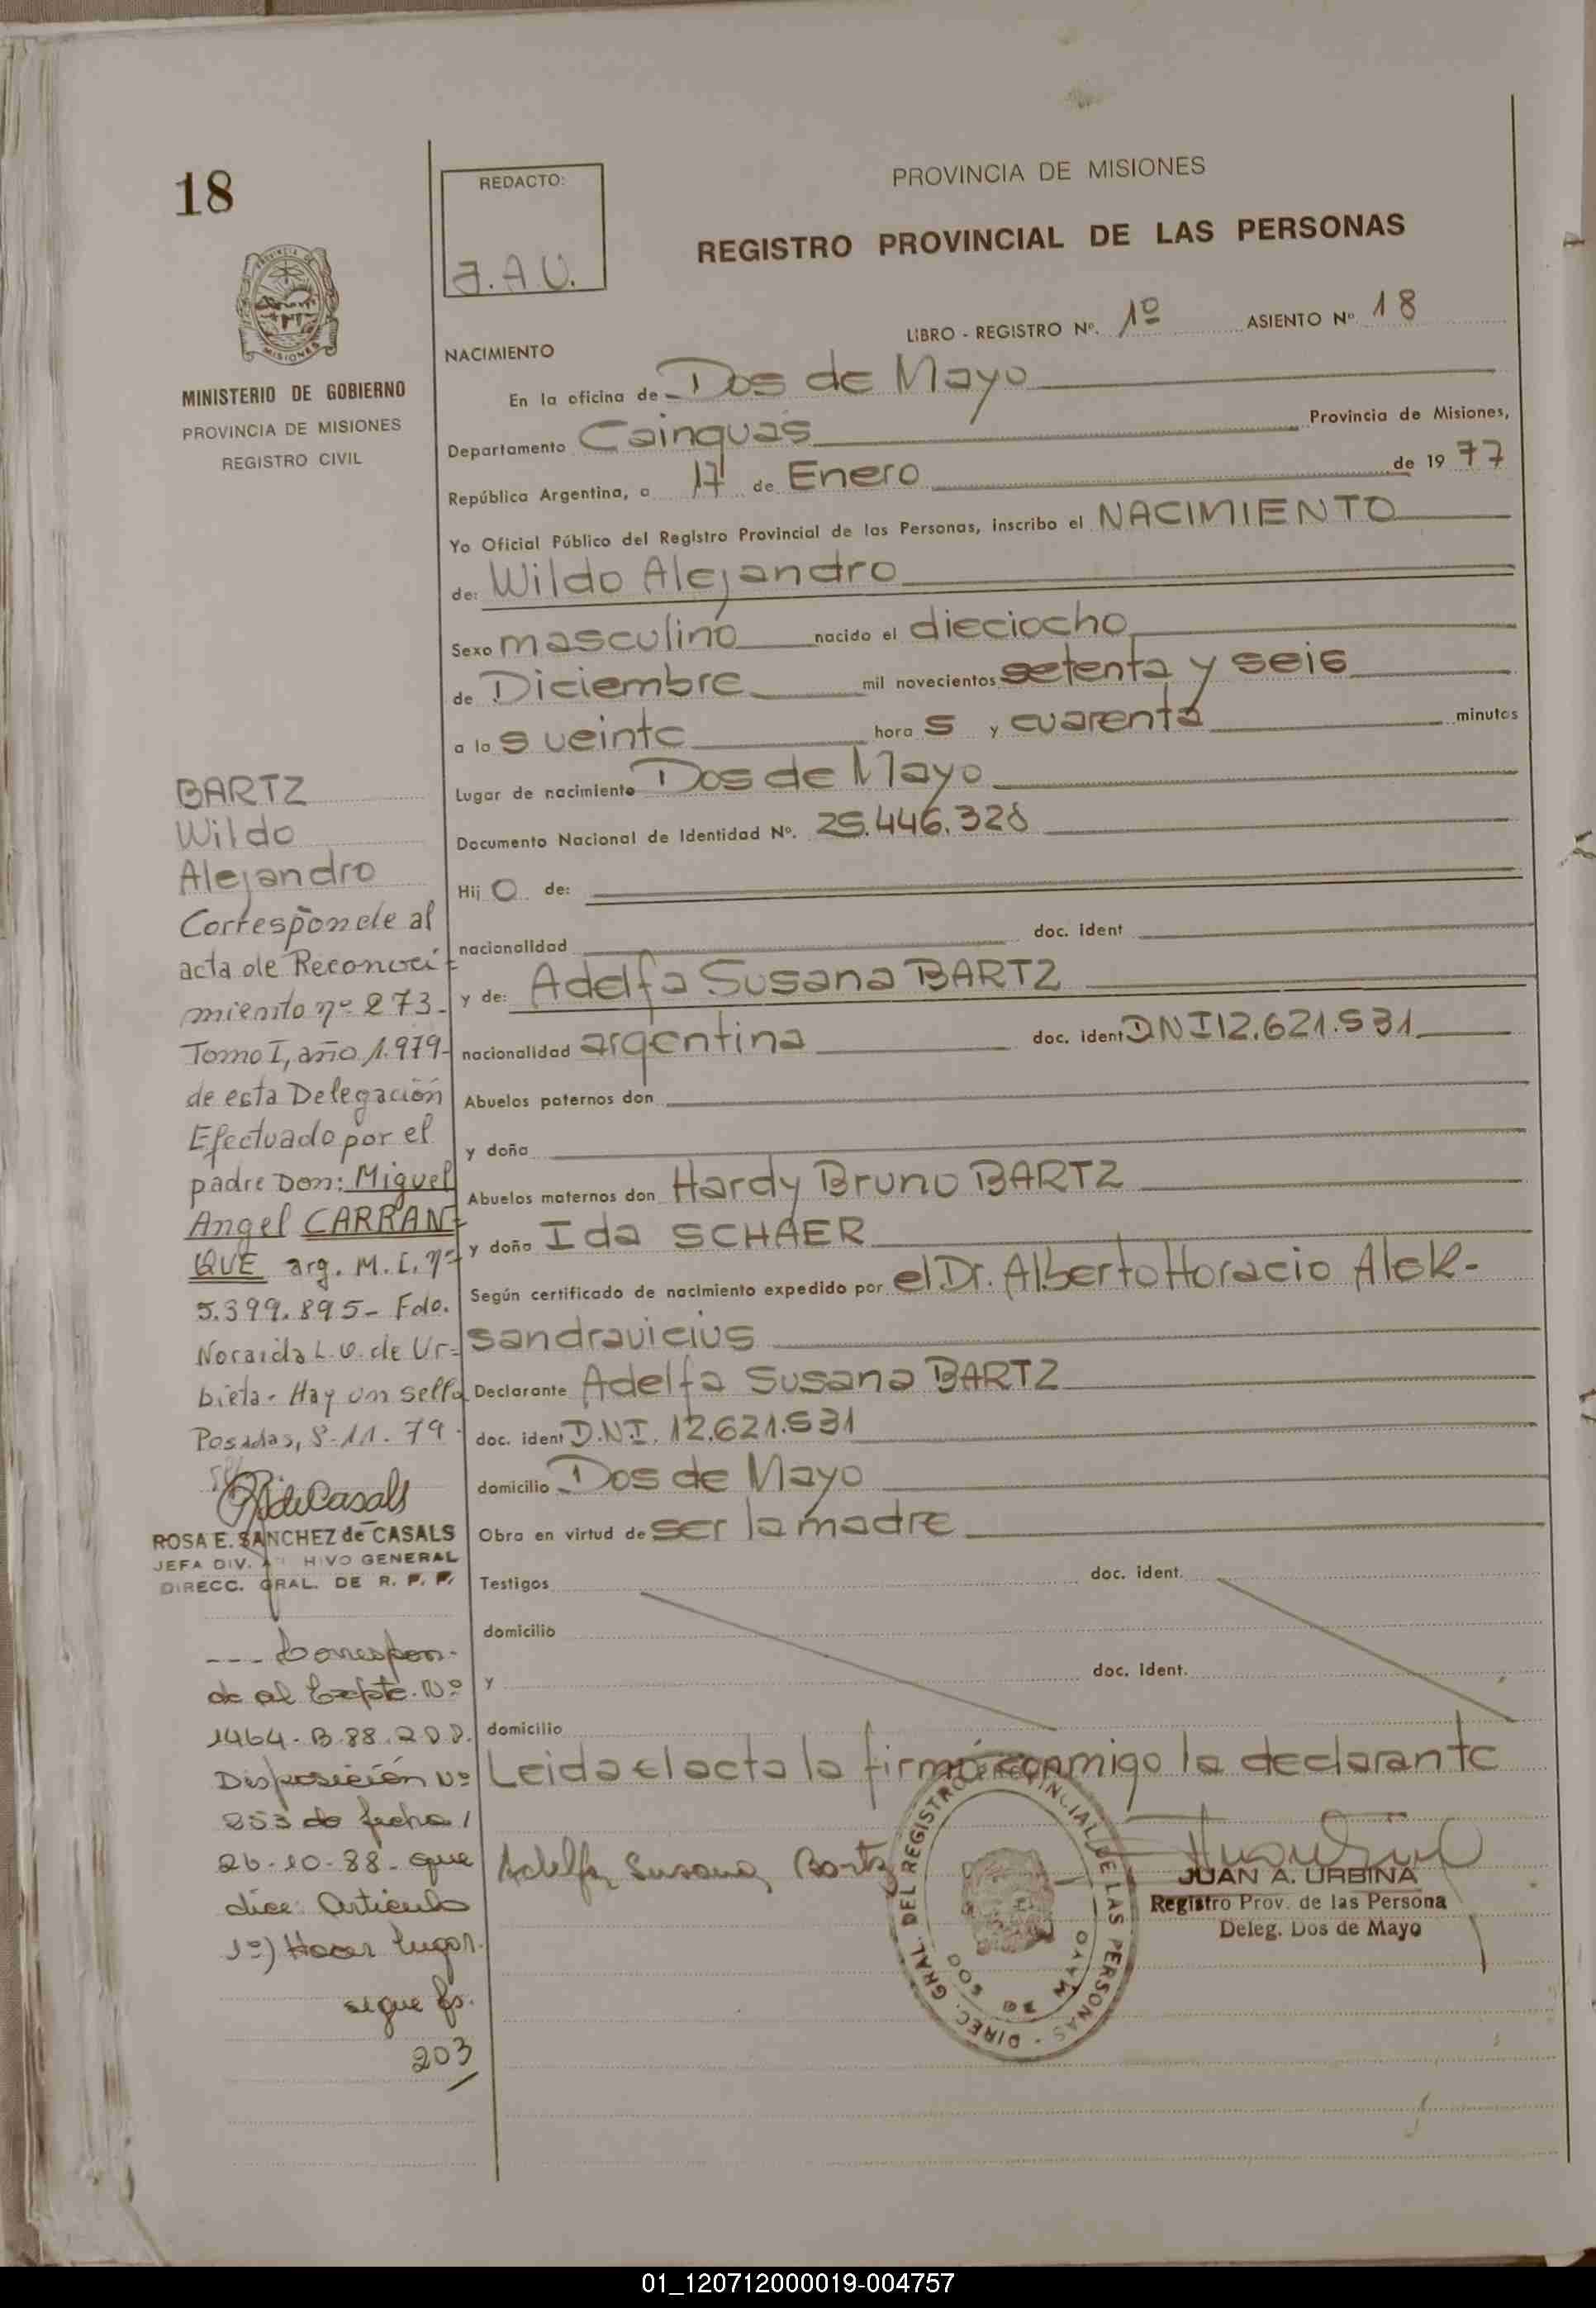 18
MINISTERIO DE GOBIERNO
PROVINCIA DE MISIONES
REGISTRO CIVIL
BARTZ
Wildo
Alejandro
Corresponde al
acta de Reconoci=
miento nº 273-
Tomo I, año 1.979-
de esta Delegación
Efectuado por el
padre Don: Miguel
Angel CARRAN=
QUE arg. M.I. nº
5.399.895- Fdo.
Noraida L. V. de Ur=
bieta- Hay un sello
Posadas, 8-11-79.
ROSA E. SANCHEZ de CASALS
JEFA DIV. HIVO GENERAL
DIRECC. GRAL. DE R. P. P.
--- Correspon-
de al Expte. Nº
1464-B-88.
Disposición Nº
253 de fecha
26-10-88- que
dice: Articulo
1º) Hacer lugar.
sigue fs.
203
REDACTO:
J.A.U.
PROVINCIA DE MISIONES
REGISTRO PROVINCIAL DE LAS PERSONAS
LIBRO - REGISTRO Nº. 1º ASIENTO Nº 18
NACIMIENTO
En la oficina de Dos de Mayo
Departamento Cainguás Provincia de Misiones,
República Argentina, a 17 de Enero de 19 77
Yo Oficial Público del Registro Provincial de las Personas, inscribo el NACIMIENTO
de: Wildo Alejandro
Sexo masculino nacido el dieciocho
de Diciembre mil novecientos setenta y seis
a la s veinte hora s y cuarenta minutos
Lugar de nacimiento Dos de Mayo
Documento Nacional de Identidad Nº. 25.446.328
Hij o de:
nacionalidad doc. ident
y de: Adelfa Susana BARTZ
nacionalidad argentina doc. ident DNI 12.621.531
Abuelos paternos don
y doña
Abuelos maternos don Hardy Bruno BARTZ
y doña Ida SCHAER
Según certificado de nacimiento expedido por el Dr. Alberto Horacio Alek-
sandravicius
Declarante Adelfa Susana BARTZ
doc. ident D.N.I. 12.621.531
domicilio Dos de Mayo
Obra en virtud de ser la madre
Testigos doc. ident.
domicilio
y doc. ident.
domicilio
Leida el acta la firmó conmigo la declarante
Adelfa Susana Bartz
JUAN A. URBINA
Registro Prov. de las Persona
Deleg. Dos de Mayo
DIREC. GRAL. DEL REGISTRO PROVINCIAL DE LAS PERSONAS -
DOS DE MAYO
01_120712000019-004757